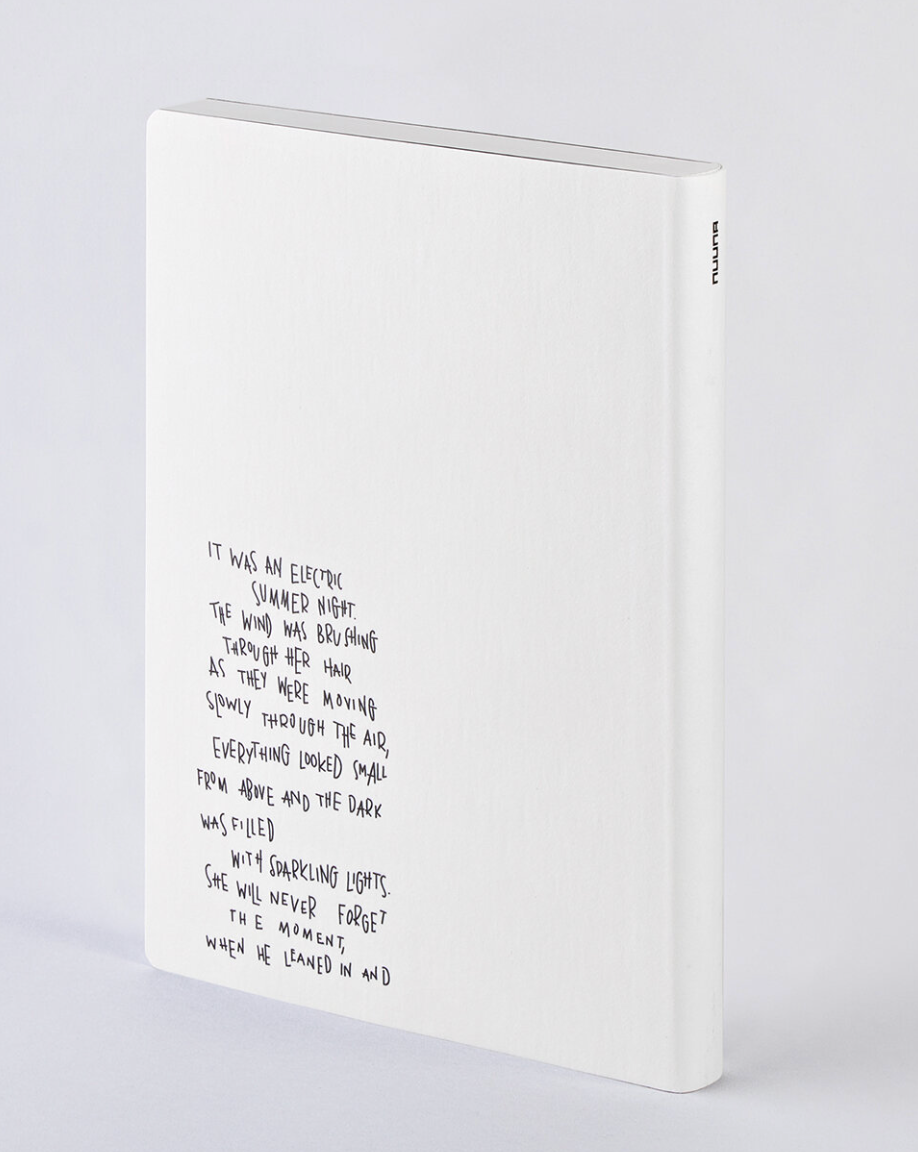 IT WAS AN ELECTRIC
SUMMER NIGHT.
THE WIND WAS BRUSHING
THROUGH HER HAIR
AS THEY WERE MOVING
SLOWLY THROUGH THE AIR,
EVERYTHING LOOKED SMALL
FROM ABOVE AND THE DARK
WAS FILLED
WITH SPARKLING LIGHTS.
SHE WILL NEVER FORGET
THE MOMENT,
WHEN HE LEANED IN AND
nuuna